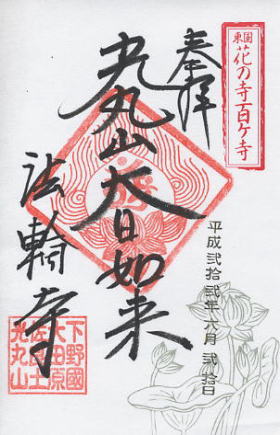 東国
花の寺百ヶ寺
奉拝
光丸山大日如来
法輪寺
平成弐拾弐年六月弐拾日
下野國
大田原
佐良土
光丸山